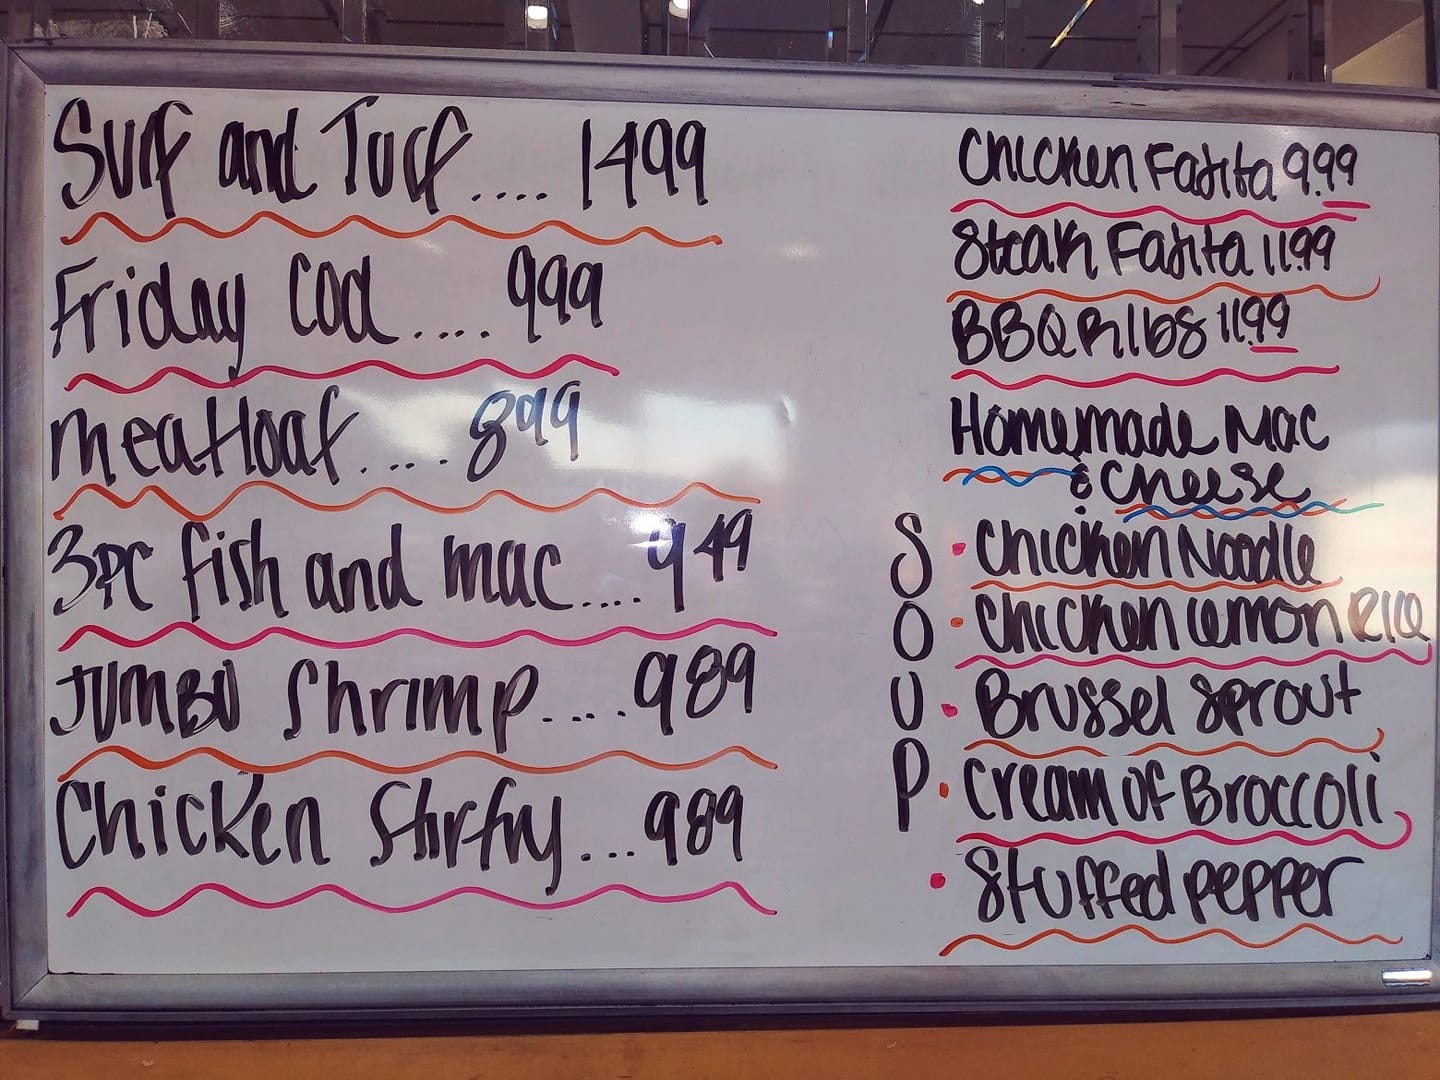 Surf and Turf.... 1499
Friday Cod.... 999
meatloaf..... 899
3pc fish and mac.... 949
Jumbo Shrimp.... 989
Chicken Stirfry... 989
Chicken Fajita 9.99
Steak Fajita 11.99
BBQ Ribs 11.99
Homemade Mac
& Cheese
SOUP
• Chicken Noodle
• Chicken Lemon Rice
• Brussel Sprout
• Cream of Broccoli
• Stuffed pepper